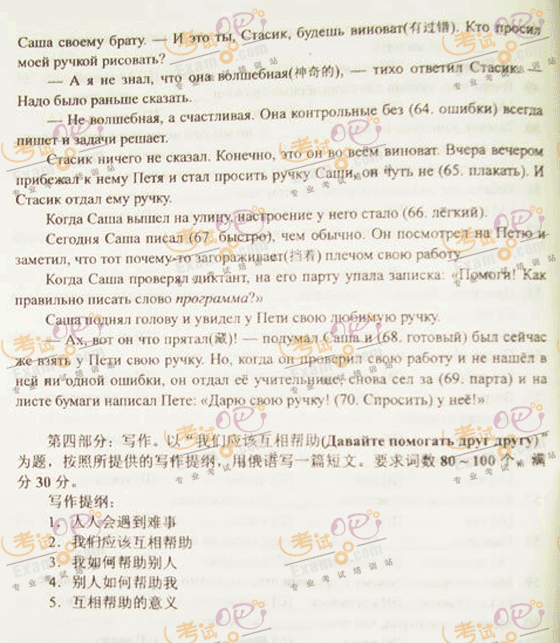 Саша своему брату. — И это ты, Стасик, будешь виноват(有过错). Кто просил
моей ручкой рисовать?
— А я не знал, что она волшебная(神奇的), — тихо ответил Стасик. —
Надо было раньше сказать.
— Не волшебная, а счастливая. Она контрольные без (64. ошибки) всегда
пишет и задачи решает.
Стасик ничего не сказал. Конечно, это он во всём виноват. Вчера вечером
прибежал к нему Петя и стал просить ручку Саши, он чуть не (65. плакать). И
Стасик отдал ему ручку.
Когда Саша вышел на улицу, настроение у него стало (66. лёгкий).
Сегодня Саша писал (67. быстро), чем обычно. Он посмотрел на Петю и
заметил, что тот почему-то загораживает(挡着) плечом свою работу.
Когда Саша проверял диктант, на его парту упала записка: «Помоги! Как
правильно писать слово программа?»
Саша поднял голову и увидел у Пети свою любимую ручку.
— Ах, вот он что прятал(藏)! — подумал Саша и (68. готовый) был сейчас
же взять у Пети свою ручку. Но, когда он проверил свою работу и не нашёл в
ней ни одной ошибки, он отдал её учительнице, снова сел за (69. парта) и на
листе бумаги написал Пете: «Дарю свою ручку! (70. Спросить) у неё!»
第四部分：写作。以“我们应该互相帮助(Давайте помогать друг другу)”
为题，按照所提供的写作提纲，用俄语写一篇短文。要求词数 80～100 个，满
分 30 分。
写作提纲：
1. 人人会遇到难事
2. 我们应该互相帮助
3. 我如何帮助别人
4. 别人如何帮助我
5. 互相帮助的意义